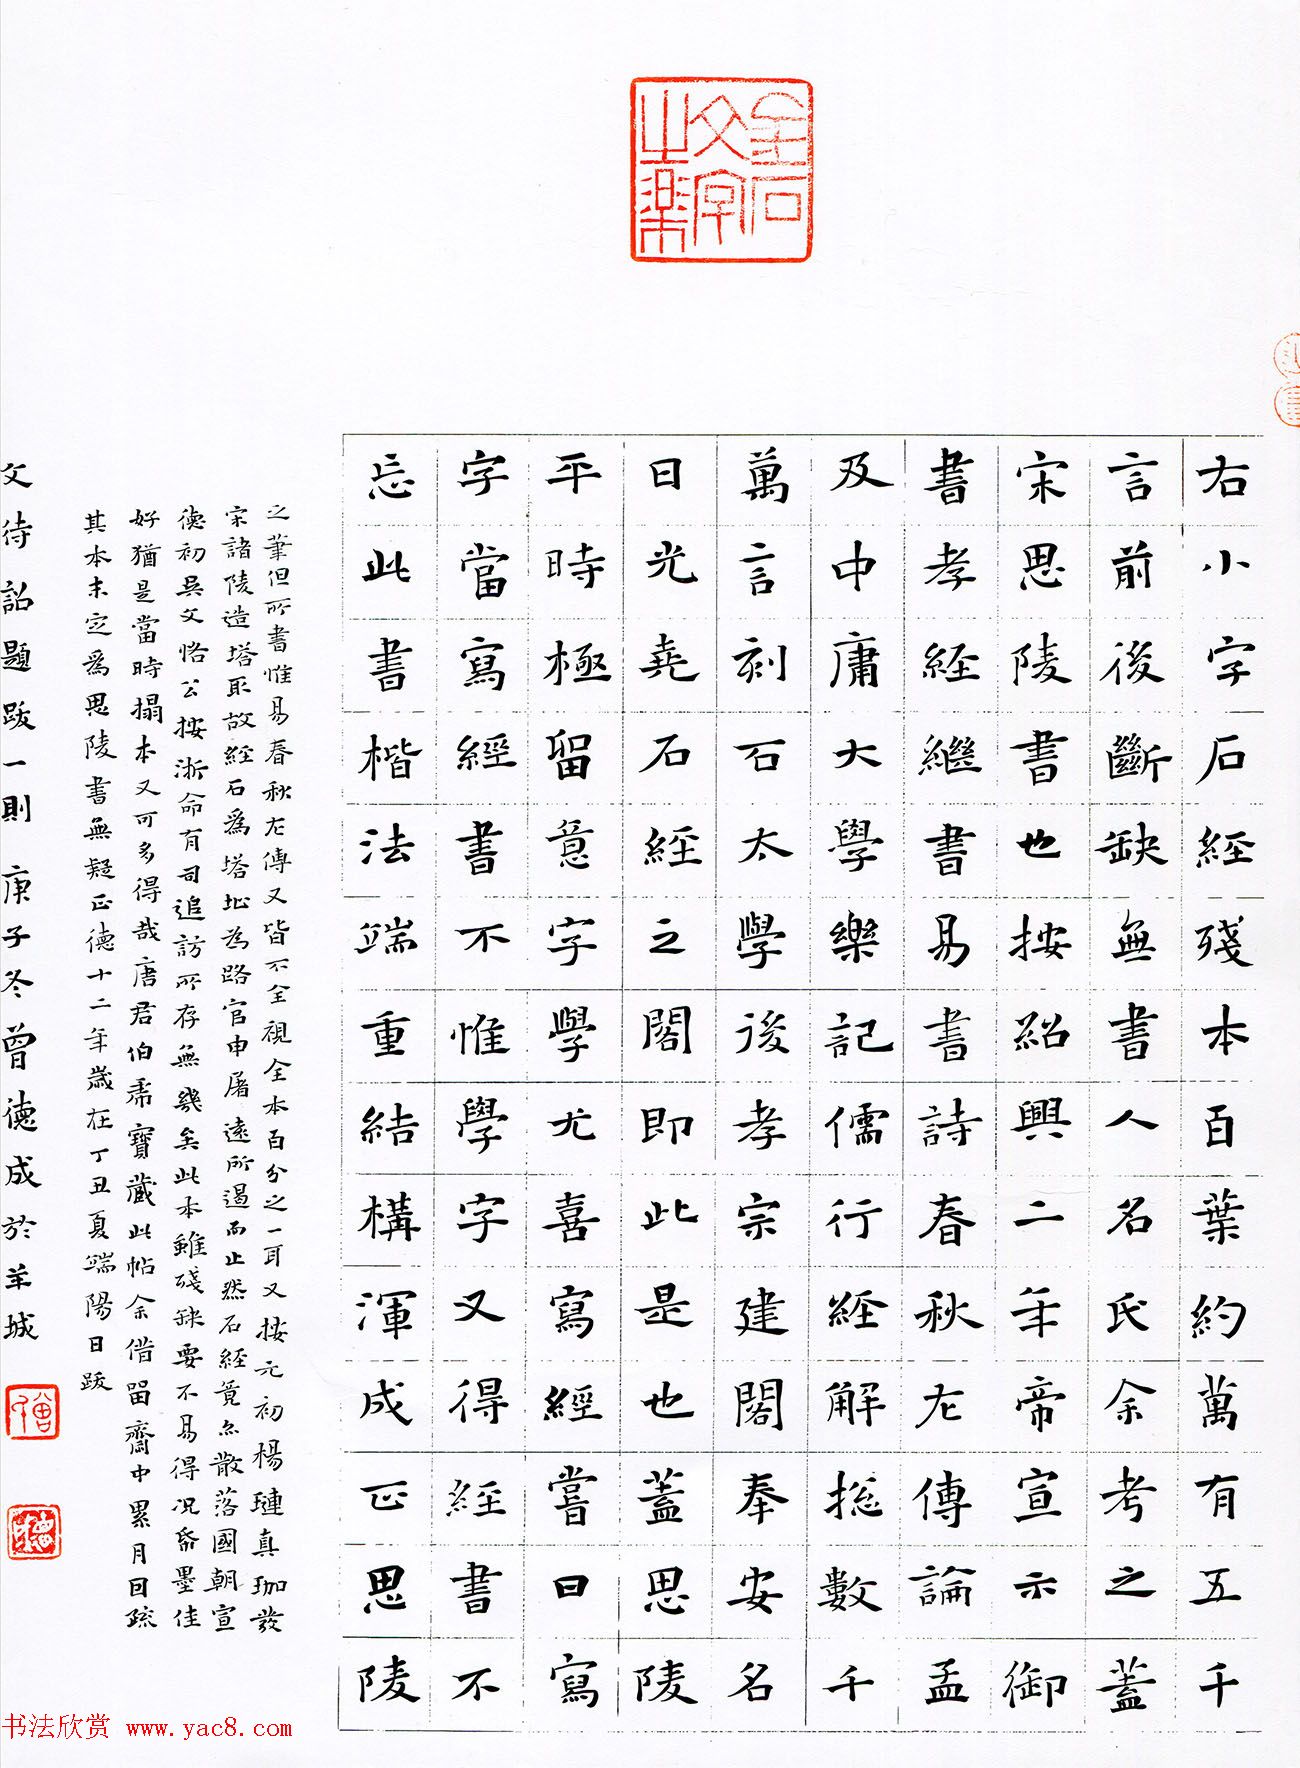 金石文字之樂
右小字石經殘本百葉約萬有五千
言前後斷缺無書人名氏余考之蓋
宋思陵書也按紹興二年帝宣示御
書孝經繼書易書詩春秋左傳論孟
及中庸大學樂記儒行經解捴數千
萬言刻石太學後孝宗建閣奉安名
日光堯石經之閣即此是也蓋思陵
平時極留意字學尤喜寫經嘗曰寫
字當寫經書不惟學字又得經書不
忘此書楷法端重結構渾成正思陵
之筆但所書惟易春秋左傳又皆不全視全本百分之一耳又按元初楊璉真珈發
宋諸陵造塔取故經石為塔址為路官申屠遠所遏而止然石經竟亦散落國朝宣
德初吳文恪公按浙命有司追訪所存無幾矣此本雖殘缺要不易得況紙墨佳
好猶是當時搨本又可多得哉唐君伯虎寶藏此帖余借留齋中累月因疏
其本末定為思陵書無疑正德十二年歲在丁丑夏端陽日跋
文待詔題跋一則 庚子冬曾德成於羊城
书法欣赏 www.yac8.com